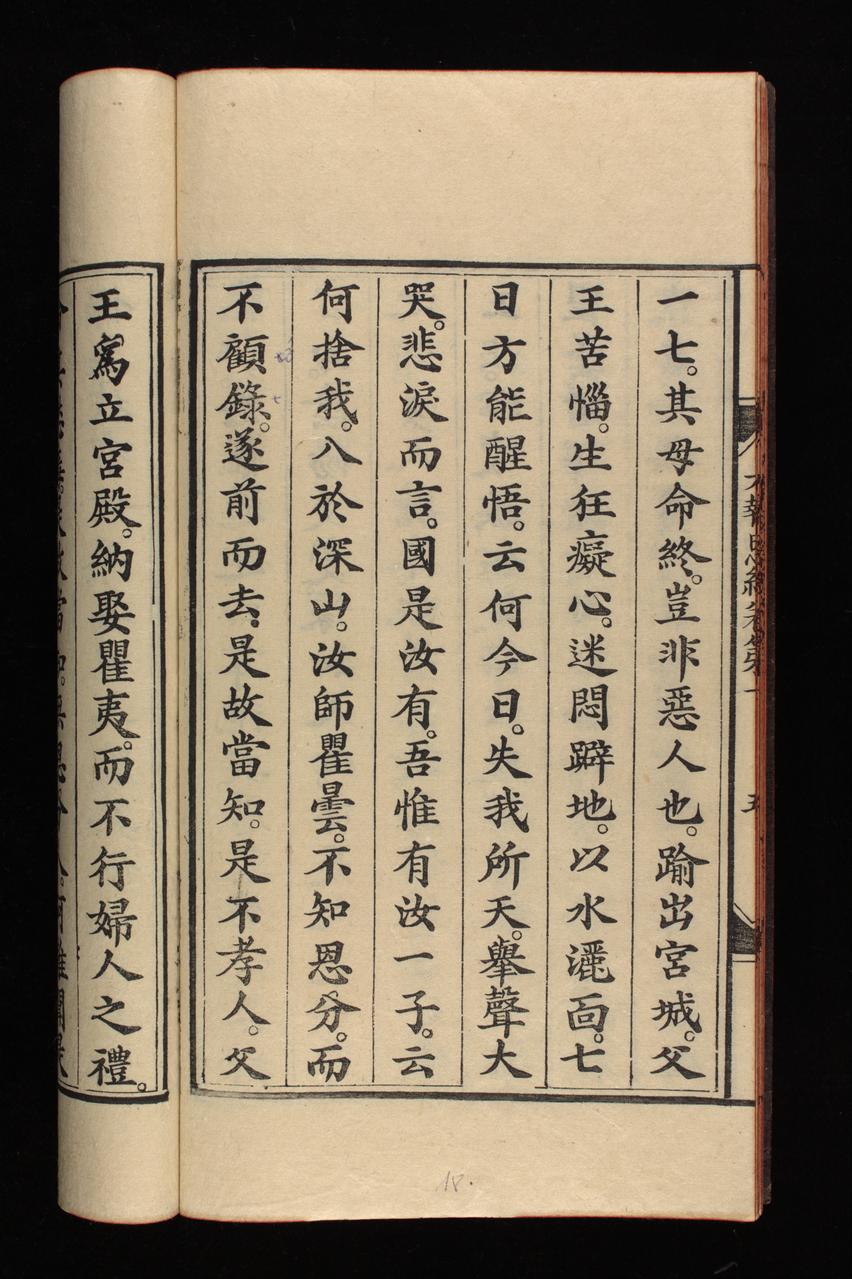 一七。其母命終。豈非惡人也。踰出宮城。父
王苦惱。生狂癡心。迷悶躃地。以水灑面。七
日方能醒悟。云何今日。失我所天。舉聲大
哭。悲淚而言。國是汝有。吾惟有汝一子。云
何捨我。入於深山。汝師瞿曇。不知恩分。而
不顧錄。遂前而去。是故當知。是不孝人。父
王為立宮殿。納娶瞿夷。而不行婦人之禮。
報恩經卷第一
五
18.